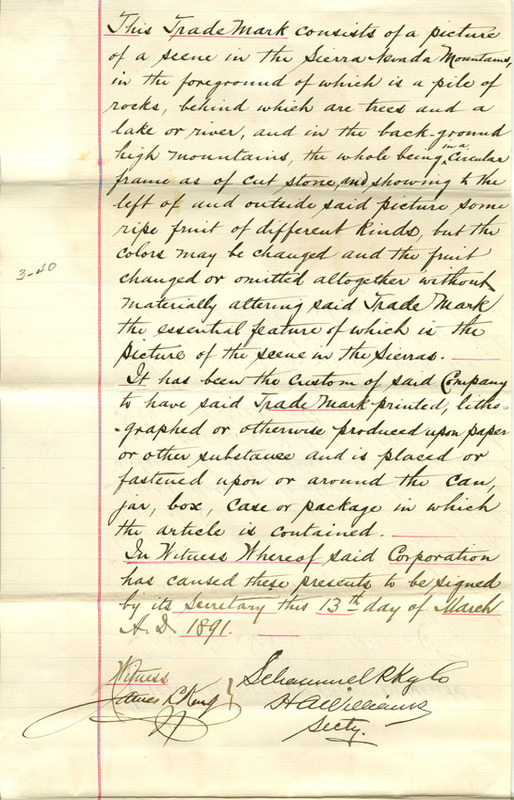 This Trade Mark consists of a picture
of a scene in the Sierra Nevada Mountains,
in the foreground of which is a pile of
rocks, behind which are trees and a
lake or river, and in the back-ground
high mountains, the whole being in a Circular
frame as of cut stone, and showing to the
left of and outside said picture some
ripe fruit of different kinds, but the
colors may be changed and the fruit
changed or omitted altogether without
materially altering said Trade Mark
the essential feature of which is the
picture of the scene in the Sierras.
It has been the custom of said Company
to have said Trade Mark printed, litho-
-graphed or otherwise produced upon paper
or other substance and is placed or
fastened upon or around the can,
jar, box, case or package in which
the article is contained.
In Witness Whereof said Corporation
has caused these presents to be signed
by its Secretary this 13th day of March
A.D. 1891.
3-40
Witness
James King
Co
H A Williams
Secty.